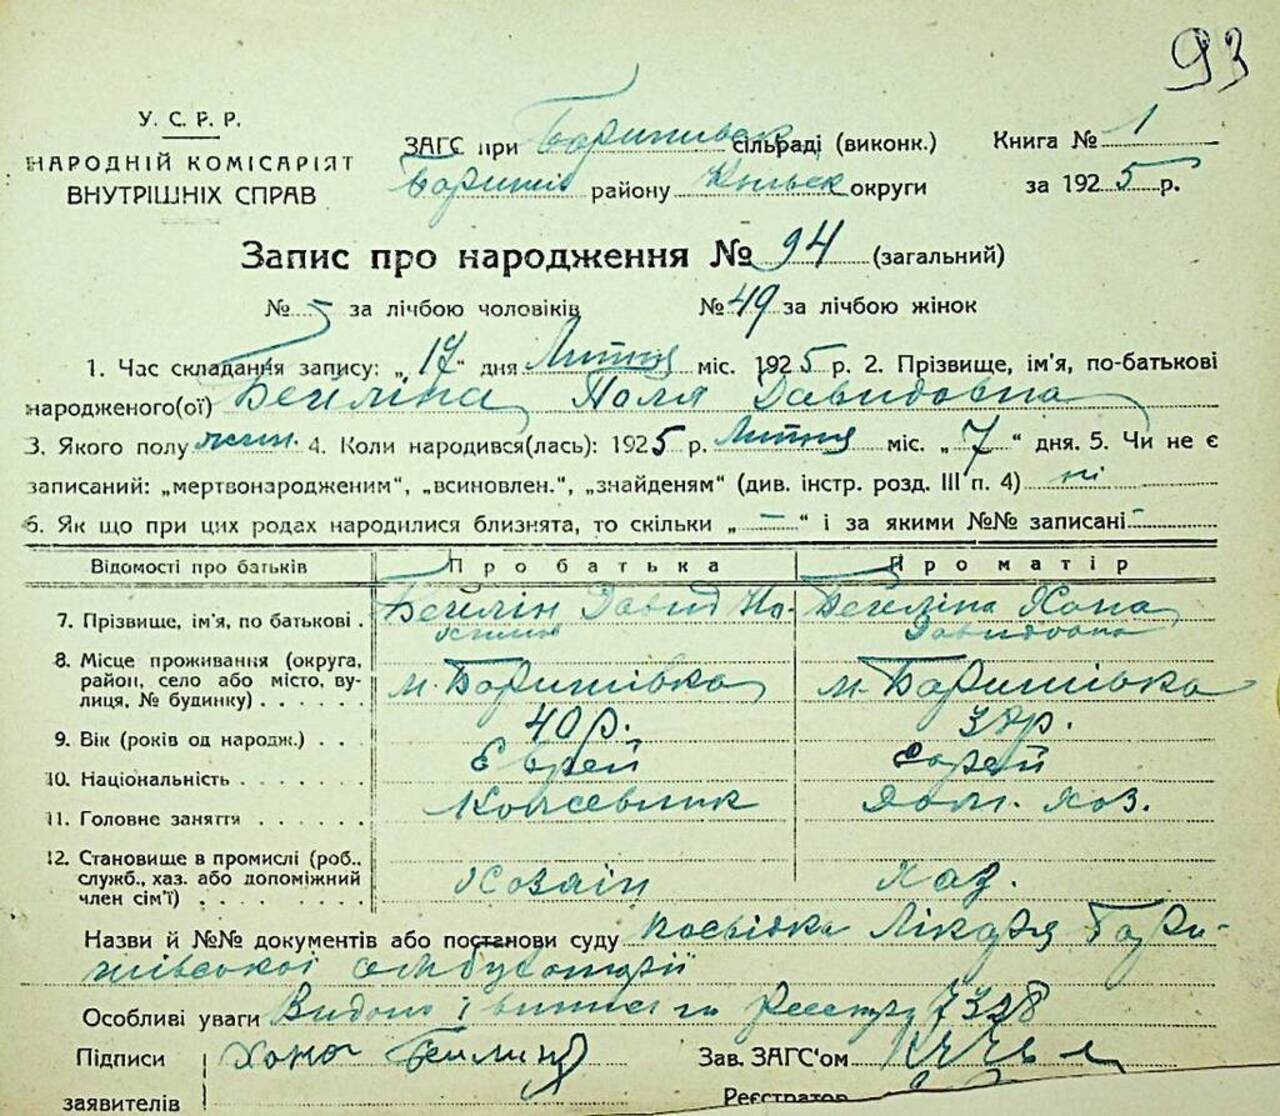 93
У. С. Р. Р.
НАРОДНІЙ КОМІСАРІЯТ
ВНУТРІШНІХ СПРАВ
ЗАГС при Баришівськ сільраді (виконк.)
Баришів району Київськ округи
Книга № 1
за 1925 р.
Запис про народження № 94 (загальний)
№ 5 за лічбою чоловіків № 49 за лічбою жінок
1. Час складання запису: „17" дня Лютня міс. 1925 р. 2. Прізвище, ім'я, по-батькові
народженого(ої) Бейліна Поля Давидовна
3. Якого полу жін. 4. Коли народився(лась): 1925 р. Лютня міс. „7" дня. 5. Чи не є
записаний: „мертвонародженим", „всиновлен.", „знайденям" (див. інстр. розд. III п. 4) ні
6. Як що при цих родах народилися близнята, то скільки „—" і за якими №№ записані -
Відомості про батьків Про батька Про матір
7. Прізвище, ім'я, по батькові . Бейлін Давид Бейліна Хана
Давидовна
8. Місце проживання (округа,
район, село або місто, ву-
лиця, № будинку) . . . . . . м. Баришівка м. Баришівка
9. Вік (років од народж.) . . . 40 р.
10. Національність . . . . . . Єврей Єврей
11. Головне заняття . . . . . . Дом. хоз.
12. Становище в промислі (роб.,
служб., хаз. або допоміжний
член сім'ї) . . . . . . . . . Хозяін Хаз.
Назви й №№ документів або постанови суду посвідка Лікаря Бари-
шівської амбулаторії
Особливі уваги Видано реєстру 7328
Підписи Хана Бейлина Зав. ЗАГС'ом
заявителів Реєстратор